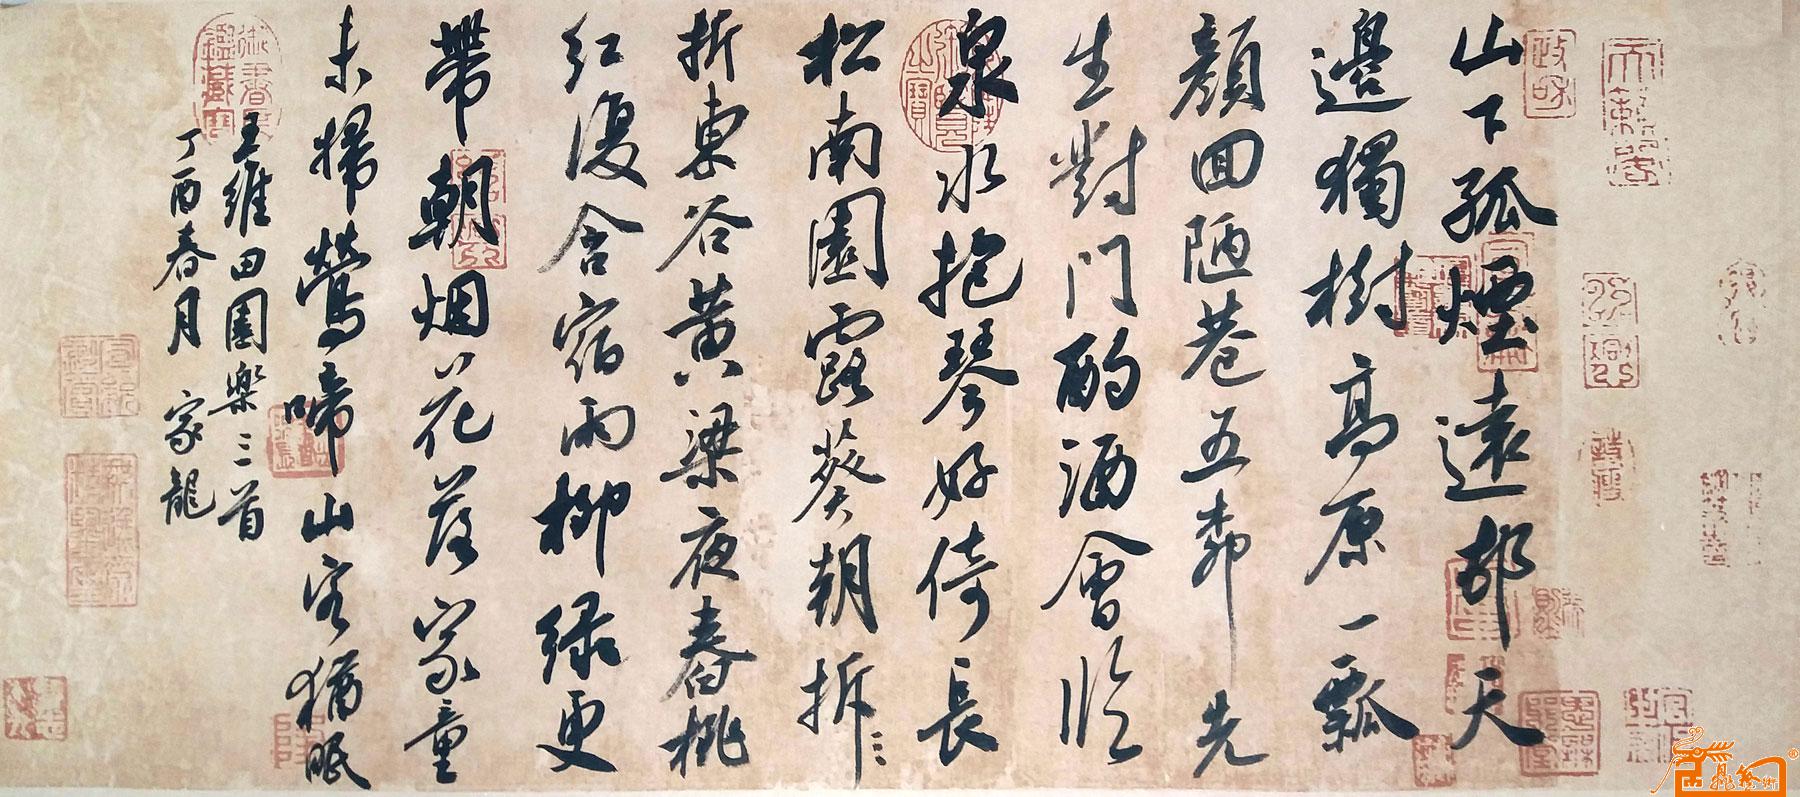 山下孤煙遠邨天
邊獨樹高原一瓢
顏回陋巷五柳先
生對門酌酒會臨
泉水抱琴好倚長
松南園露葵朝拆
折東谷黃粱夜舂桃
红復含宿雨柳绿更
帶朝烟花落家童
未掃鶯啼山客猶眠
王維田園樂三首
丁酉春月 家龍
政和